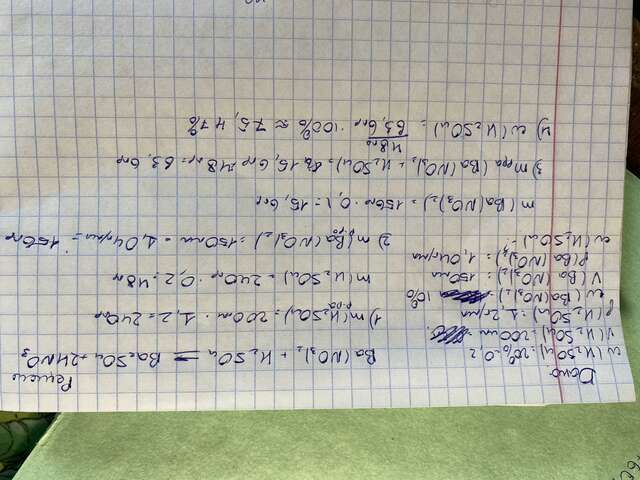 Дано
Решение
w(H₂SO₄)=20%=0,2
V(H₂SO₄)=200мл
ρ(H₂SO₄)=1,2г/мл
w(Ba(NO₃)₂)= 10%
V(Ba(NO₃)₂)=150мл
ρ(Ba(NO₃)₂)=1,04г/мл
w(H₂SO₄)-
Ba(NO₃)₂ + H₂SO₄ = BaSO₄+2HNO₃
1) m р-ра(H₂SO₄)=200мл · 1,2=240гр
m(H₂SO₄)=240гр · 0,2=48г
2) m р-ра(Ba(NO₃)₂)=150мл · 1,04г/мл=156гр
m(Ba(NO₃)₂)=156гр · 0,1=15,6гр
3) m рра(Ba(NO₃)₂+H₂SO₄)= 15,6гр+48гр=63,6гр
4) w(H₂SO₄)= 48гр/63,6гр · 100% ≈ 75,47%